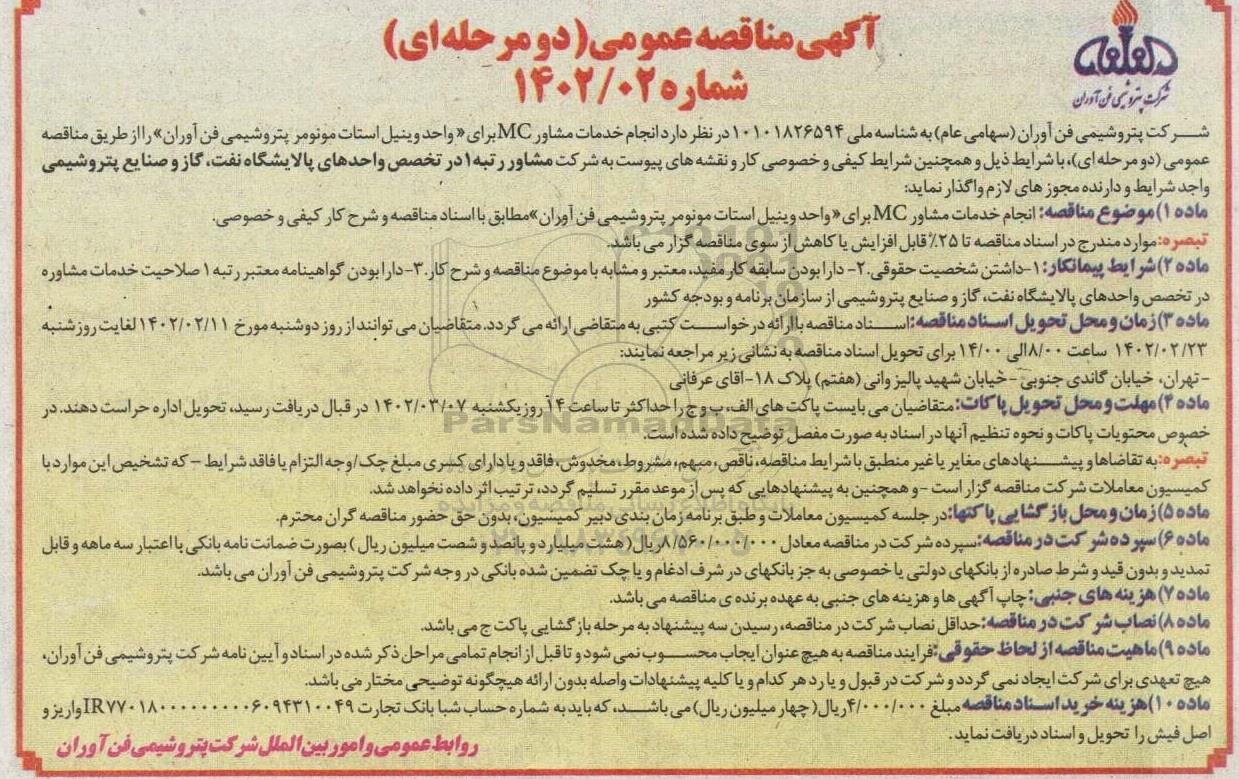 آگهی مناقصه عمومی (دو مرحله ای)
شماره ۱۴۰۲/۰۲
شرکت پتروشیمی فن آوران
شرکت پتروشیمی فن آوران (سهامی عام) به شناسه ملی ۱۰۱۰۱۸۲۶۵۹۴ در نظر دارد انجام خدمات مشاور MC برای «واحد وینیل استات مونومر پتروشیمی فن آوران» را از طریق مناقصه
عمومی (دو مرحله ای)، با شرایط ذیل و همچنین شرایط کیفی و خصوصی کار و نقشه های پیوست به شرکت مشاور رتبه ۱ در تخصص واحدهای پالایشگاه نفت، گاز و صنایع پتروشیمی
واجد شرایط و دارنده مجوز های لازم واگذار نماید:
ماده ۱) موضوع مناقصه: انجام خدمات مشاور MC برای «واحد وینیل استات مونومر پتروشیمی فن آوران» مطابق با اسناد مناقصه و شرح کار کیفی و خصوصی.
تبصره: موارد مندرج در اسناد مناقصه تا ۲۵٪ قابل افزایش یا کاهش از سوی مناقصه گزار می باشد.
ماده ۲) شرایط پیمانکار: ۱- داشتن شخصیت حقوقی. ۲- دارا بودن سابقه کار مفید، معتبر و مشابه با موضوع مناقصه و شرح کار. ۳- دارا بودن گواهینامه معتبر رتبه ۱ صلاحیت خدمات مشاوره
در تخصص واحدهای پالایشگاه نفت، گاز و صنایع پتروشیمی از سازمان برنامه و بودجه کشور
ماده ۳) زمان و محل تحویل اسناد مناقصه: اسناد مناقصه با ارائه درخواست کتبی به متقاضی ارائه می گردد. متقاضیان می توانند از روز دوشنبه مورخ ۱۴۰۲/۰۲/۱۱ لغایت روز شنبه
۱۴۰۲/۰۲/۲۳ ساعت ۸/۰۰ الی ۱۴/۰۰ برای تحویل اسناد مناقصه به نشانی زیر مراجعه نمایند:
- تهران، خیابان گاندی جنوبی - خیابان شهید پالیزوانی (هفتم) پلاک ۱۸ - اقای عرفانی
ماده ۴) مهلت و محل تحویل پاکات: متقاضیان می بایست پاکت های الف، ب و ج را حداکثر تا ساعت ۱۴ روز یکشنبه ۱۴۰۲/۰۳/۰۷ در قبال دریافت رسید، تحویل اداره حراست دهند. در
خصوص محتویات پاکات و نحوه تنظیم آنها در اسناد به صورت مفصل توضیح داده شده است.
تبصره: به تقاضاها و پیشنهادهای مغایر یا غیر منطبق با شرایط مناقصه، ناقص، مبهم، مشروط، مخدوش، فاقد و یا دارای کسری مبلغ چک/وجه التزام یا فاقد شرایط – که تشخیص این موارد با
کمیسیون معاملات شرکت مناقصه گزار است - و همچنین به پیشنهادهایی که پس از موعد مقرر تسلیم گردد، ترتیب اثر داده نخواهد شد.
ماده ۵) زمان و محل بازگشایی پاکتها: در جلسه کمیسیون معاملات و طبق برنامه زمان بندی دبیر کمیسیون، بدون حق حضور مناقصه گران محترم.
ماده ۶) سپرده شرکت در مناقصه: سپرده شرکت در مناقصه معادل ۸/۵۶۰/۰۰۰/۰۰۰ ریال (هشت میلیارد و پانصد و شصت میلیون ریال) بصورت ضمانت نامه بانکی با اعتبار سه ماهه و قابل
تمدید و بدون قید و شرط صادره از بانکهای دولتی یا خصوصی به جز بانکهای در شرف ادغام و یا چک تضمین شده بانکی در وجه شرکت پتروشیمی فن آوران می باشد.
ماده ۷) هزینه های جنبی: چاپ آگهی ها و هزینه های جنبی به عهده برنده ی مناقصه می باشد.
ماده ۸) نصاب شرکت در مناقصه: حداقل نصاب شرکت در مناقصه، رسیدن سه پیشنهاد به مرحله بازگشایی پاکت ج می باشد.
ماده ۹) ماهیت مناقصه از لحاظ حقوقی: فرایند مناقصه به هیچ عنوان ایجاب محسوب نمی شود و تا قبل از انجام تمامی مراحل ذکر شده در اسناد و آیین نامه شرکت پتروشیمی فن آوران،
هیچ تعهدی برای شرکت ایجاد نمی گردد و شرکت در قبول و یا رد هر کدام و یا کلیه پیشنهادات واصله بدون ارائه هیچگونه توضیحی مختار می باشد.
ماده ۱۰) هزینه خرید اسناد مناقصه مبلغ ۴/۰۰۰/۰۰۰ ریال (چهار میلیون ریال) می باشد، که باید به شماره حساب شبا بانک تجارت IR۷۷۰۱۸۰۰۰۰۰۰۰۰۰۶۰۹۴۳۱۰۰۴۹ واریز و
اصل فیش را تحویل و اسناد دریافت نماید.
روابط عمومی و امور بین الملل شرکت پتروشیمی فن آوران
ParsNamadData